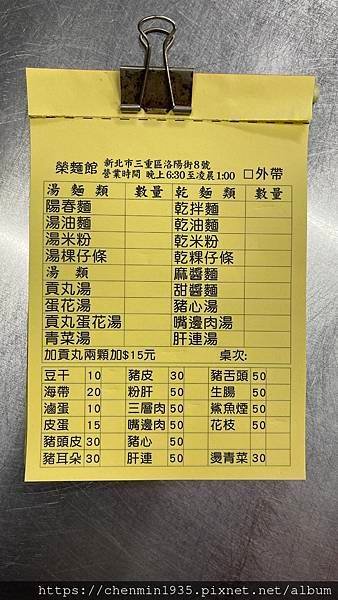 榮麵館 新北市三重區洛陽街8號
營業時間 晚上6:30至凌晨1:00 □外帶
湯麵類 數量 乾麵類 數量
陽春麵 乾拌麵
湯油麵 乾油麵
湯米粉 乾米粉
湯粿仔條 乾粿仔條
湯類 麻醬麵
貢丸湯 甜醬麵
蛋花湯 豬心湯
貢丸蛋花湯 嘴邊肉湯
青菜湯 肝連湯
加貢丸兩顆加$15元 桌次:
豆干 10 豬皮 30 豬舌頭 50
海帶 20 粉肝 50 生腸 50
滷蛋 10 三層肉 50 鯊魚煙 50
皮蛋 15 嘴邊肉 50 花枝 50
豬頭皮 30 豬心 50
豬耳朵 30 肝連 50 燙青菜 30
https://chenmin1935.pixnet.net/album